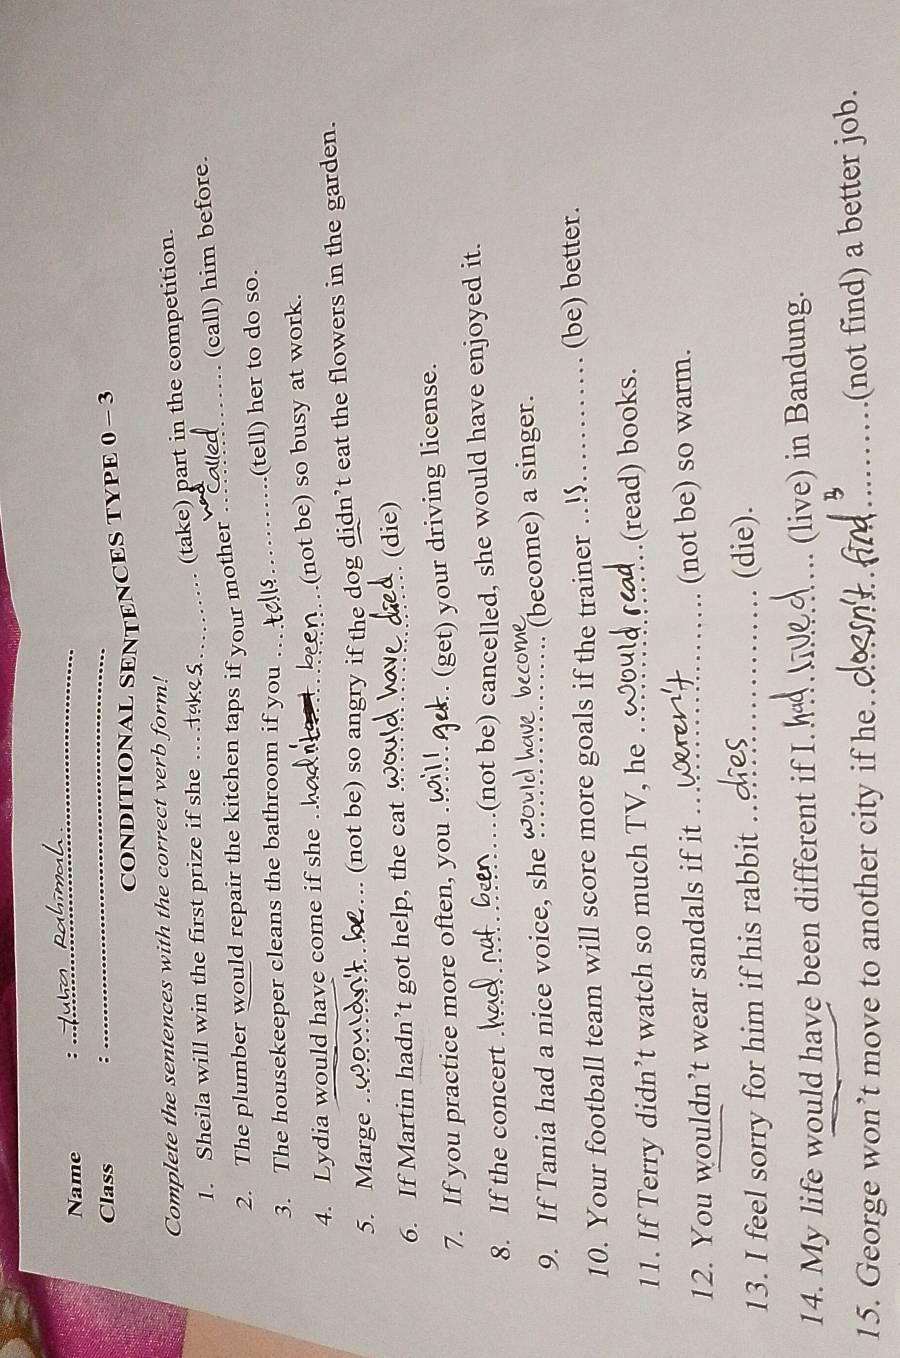 Name : Rahimah
Class :
CONDITIONAL SENTENCES TYPE 0 – 3
Complete the sentences with the correct verb form!
1. Sheila will win the first prize if she ...takes... (take) part in the competition.
2. The plumber would repair the kitchen taps if your mother ...had called... (call) him before.
3. The housekeeper cleans the bathroom if you ...tells...(tell) her to do so.
4. Lydia would have come if she ...hadn't been...(not be) so busy at work.
5. Marge ...wouldn't be... (not be) so angry if the dog didn't eat the flowers in the garden.
6. If Martin hadn't got help, the cat would have died (die)
7. If you practice more often, you ...will get.. (get) your driving license.
8. If the concert ..had not been...(not be) cancelled, she would have enjoyed it.
9. If Tania had a nice voice, she would have become (become) a singer.
10. Your football team will score more goals if the trainer ...is... (be) better.
11. If Terry didn't watch so much TV, he ...would read...(read) books.
12. You wouldn't wear sandals if it ...weren't... (not be) so warm.
13. I feel sorry for him if his rabbit ...dies... (die).
14. My life would have been different if I..had lived... (live) in Bandung.
15. George won't move to another city if he..doesn't find...(not find) a better job.